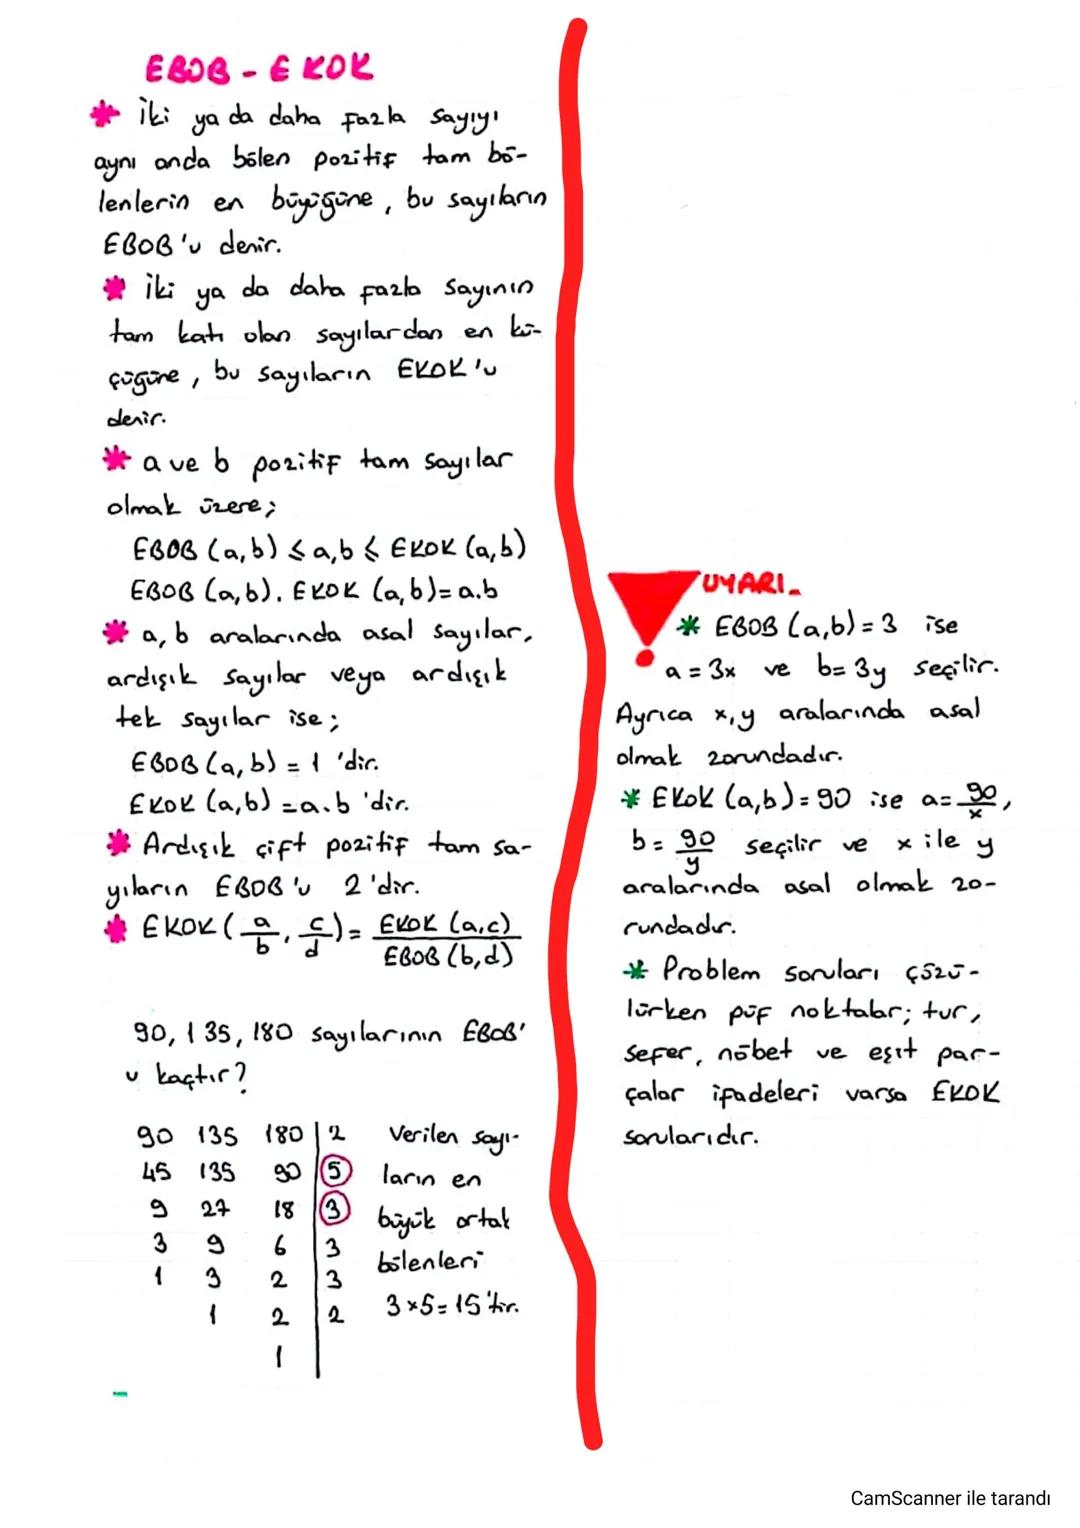 EBOB - EKOK
* İki ya da daha fazla sayıyı
aynı anda bölen pozitif tam bö-
lenlerin en büyüğüne, bu sayıların
EBOB'u denir.
* İki ya da daha fazla sayının
tam katı olan sayılardan en kü-
çüğüne, bu sayıların EKOK'u
denir.
* a ve b pozitif tam sayılar
olmak üzere;
EBOB (a,b) ≤ a,b ≤ EKOK (a,b)
EBOB (a,b). EKOK (a,b)= a.b
* a, b aralarında asal sayılar,
ardışık sayılar veya ardışık
tek sayılar ise;
EBOB (a,b) = 1 'dir.
EKOK (a,b) = a.b 'dir.
* Ardışık çift pozitif tam sa-
yıların EBOB'u 2'dir.
* EKOK (a/b, c/d) = EKOK (a,c) / EBOB (b,d)
90, 135, 180 sayılarının EBOB'
u kaçtır?
90 135 180 | 2 Verilen sayı-
45 135 90 | 5 ların en
9 27 18 | 3 büyük ortak
3 9 6 | 3 bölenleri
1 3 2 | 3
1 2 | 2 3×5=15'tir.
1
UYARI
* EBOB (a,b) = 3 ise
a = 3x ve b= 3y seçilir.
Ayrıca x,y aralarında asal
olmak zorundadır.
* EKOK (a,b)=90 ise a= 90/x,
b= 90/y seçilir ve x ile y
aralarında asal olmak zo-
rundadır.
* Problem soruları çözü-
lürken püf noktalar; tur,
sefer, nöbet ve eşit par-
çalar ifadeleri varsa EKOK
sorularıdır.
CamScanner ile tarandı